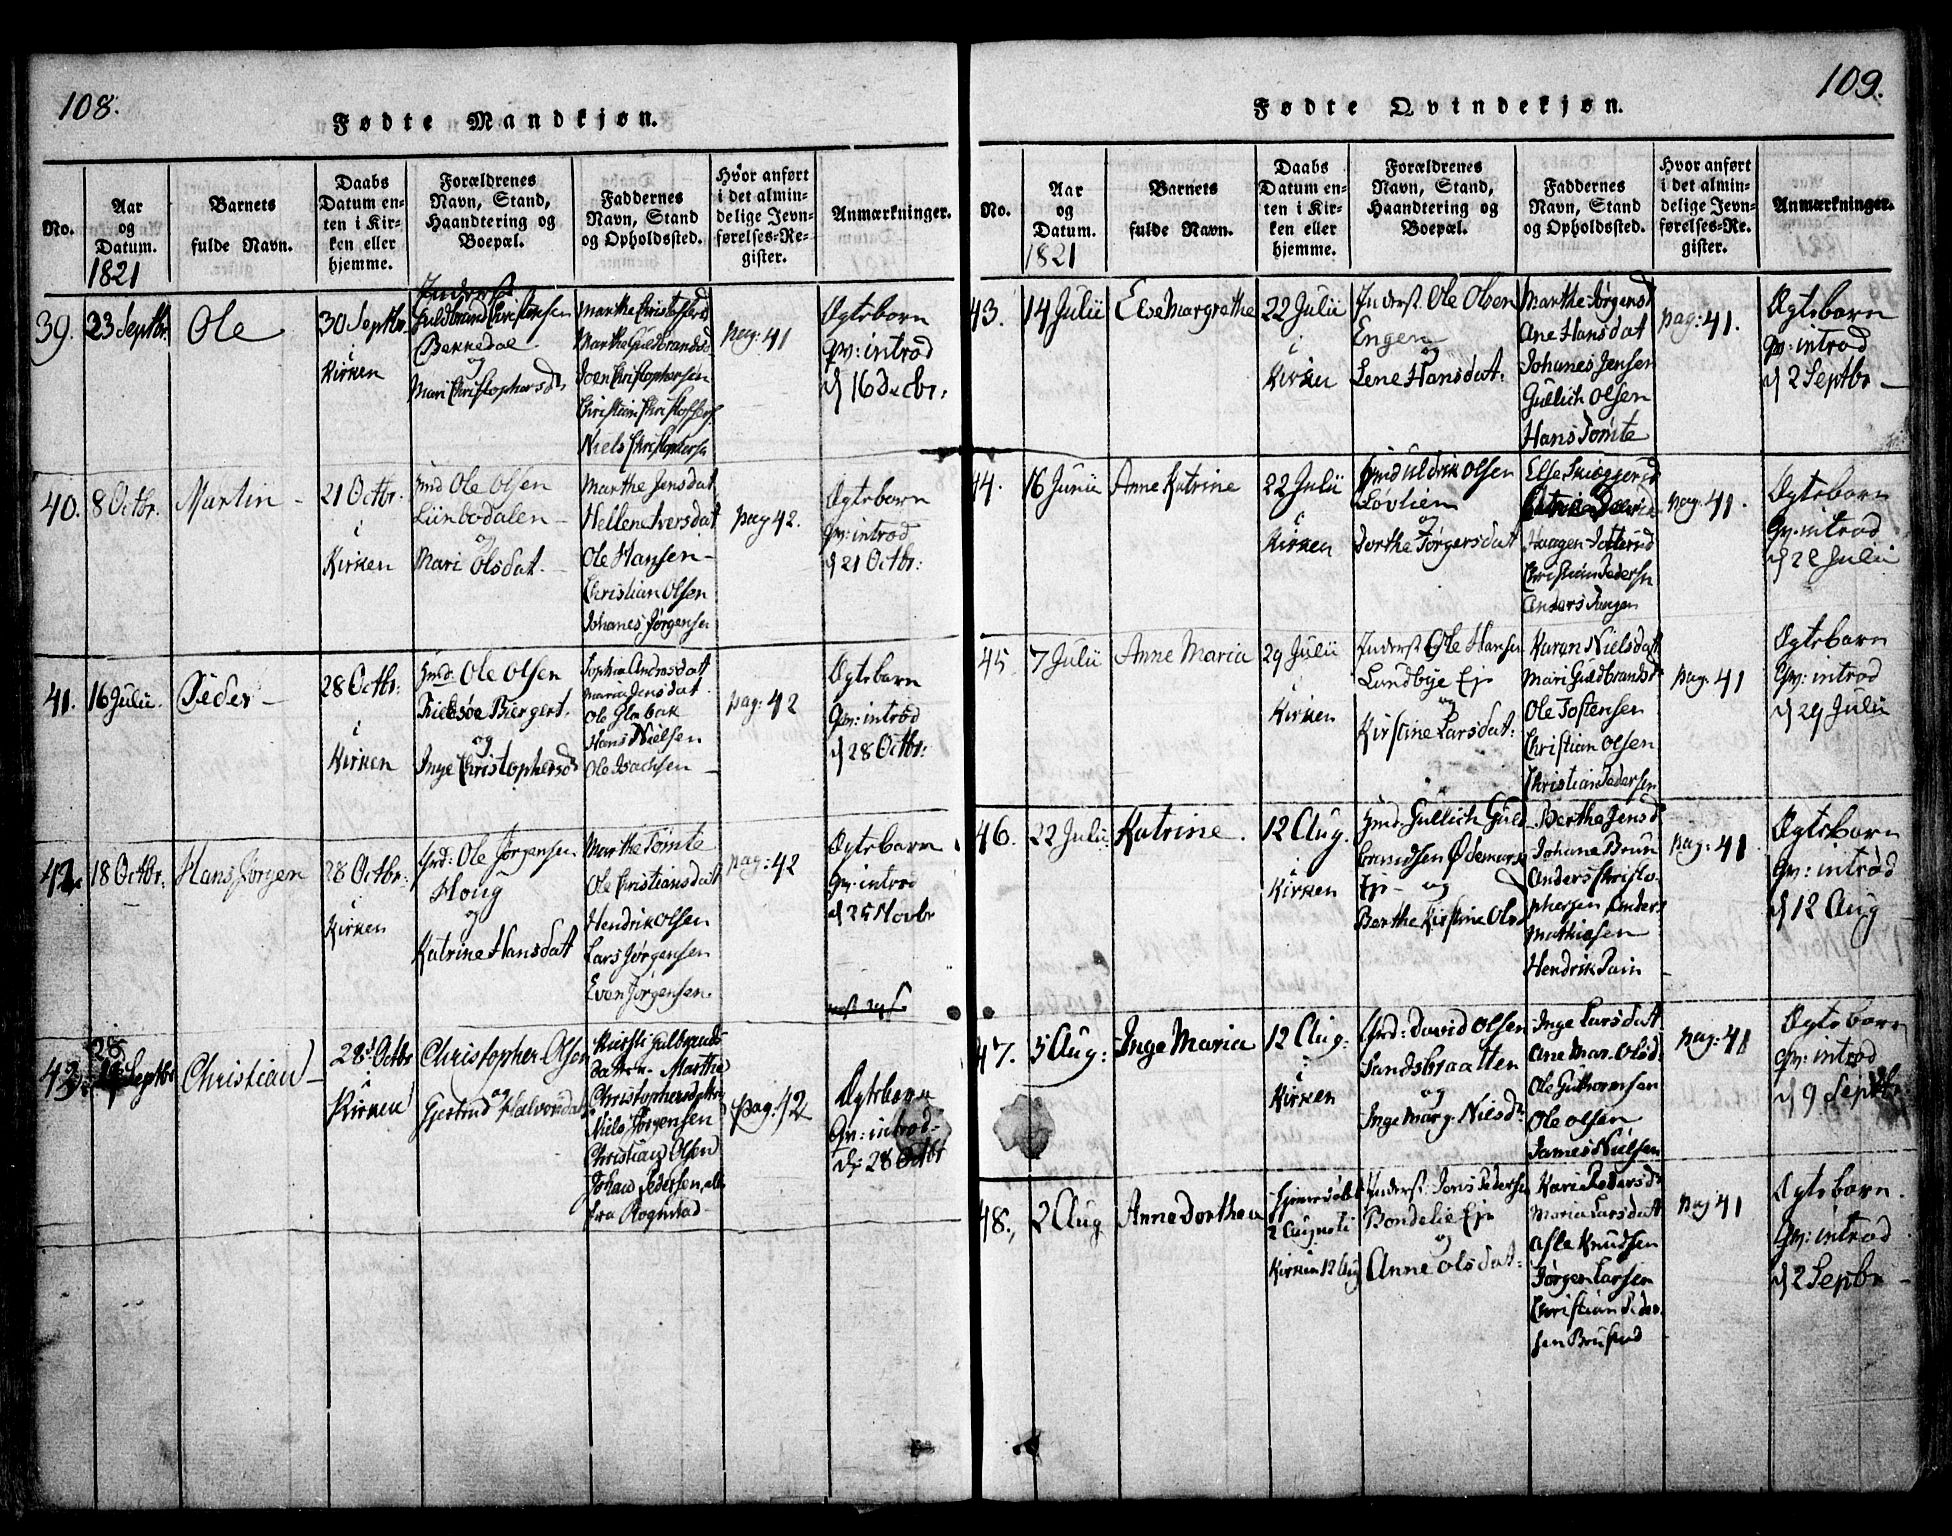 108.
Fødte Mandkjøn.
No.
Aar
og
Datum.
1821
Barnets
fulde Navn.
Daabs
Datum en-
ten i Kir-
ken eller
hjemme.
Forældrenes
Navn, Stand,
Haandtering og
Boepæl.
Faddernes
Navn, Stand
og Opholdssted.
Hvor anført
i det almin-
delige Jevn-
førelses-Re-
gister.
Anmærkninger.
39.
23 Septbr.
Ole
30 Septbr.
i
Kirken
Inderst
Guldbrand Christensen
Bekkedal
og
Mari Christophersd
Marthe Christofersd
Marthe Guldbrandsd
Joen Christophersen
Christian Christoffers.
Niels Christophersen
pag: 41
Ægtebarn
Qv: introd
d 16 Decbr:
40.
8 Octbr.
Martin
21 Octbr.
i
Kirken
Hmd Ole Olsen
Linbodalen
og
Mari Olsdat.
Marthe Jensdat
Hellene Iversdat
Ole Hansen
Christian Olsen
Johanes Jørgensen
pag 42.
Ægtebarn
Qv: introd
d 21 Octbr:
41.
16 Julii.
Peder
28 Octbr:
i
Kirken
Hmd: Ole Olsen
Biergert.
og
Inge Christophersd
Sophia Andersdat
Maria Jensdat.
Ole Glabak
Hans Nielsen
Ole Isachsen
pag: 42
Ægtebarn
Qv: introd
d 28 Octbr:
42.
18 Octbr.
Hans Jørgen
28 Octbr:
i
Kirken
Grd: Ole Jørgensen
Houg
og
Katrine Hansdat
Marthe Tømte
Ole Christiansdatt
Hendrik Olsen
Lars Jørgensen
Even Jørgensen.
pag: 42
Ægtebarn
Qv: introd
d 25 Novbr
43.
28
Septbr
Christian
28d Octbr
i
Kirken
Christopher Olsen
og
Gjertrud Halvorsdat
Kirsti Gulbrands-
datter Marthe
Christophersdatter
Niels Jørgensen
Christian Olsen
Johan Pedersen, alle
fra Rognstad
pag: 42
Ægtebarn
Qv: introd.
d: 28 Octbr
109.
Fødte Qvindekjøn.
No.
Aar
og
Datum.
1821
Barnets
fulde Navn.
Daabs
Datum en-
ten i Kir-
ken eller
hjemme.
Forældrenes
Navn, Stand,
Haandtering og
Boepæl.
Faddernes
Navn, Stand
og Opholdssted.
Hvor anført
i det almin-
delige Jevn-
førelses-Re-
gister.
Anmærkninger.
43.
14 Julii
Else Margrethe
22 Julii
i
Kirken
Inderst. Ole Olsen
Engen
og
Lene Hansdat.
Marthe Jørgensd
Ane Hansdat
Johanes Jensen
Gullich Olsen
Hans Tømte
pag: 41.
Ægtebarn
Qv: introd
d 2 Septbr
44.
16 Junii
Anne Katrine
22 Julii
i
Kirken
Hmd Uldrik Olsen
Løvlien
og
Dorthe Jørgersdat
Else
Haagen
Christian Pedersen
Anders
pag. 41.
Ægtebarn
Qv. introd
d 22 Julii
45
7 Julii
Anne Maria
29 Julii
i
Kirken
Inderst Ole Hansen
Lundbye Ejr
og
Kirstine Larsdat:
Karen Nielsdat
Mari Guldbrandsd
Ole Tostensen
Christian Olsen
Christian Pedersen
pag. 41
Ægtebarn
Qv: introd
d 29 Julii
46.
22 Julii
Katrine.
12 Aug.
i
Kirken
Hmd. Gullich Guld
brandsen Ødemark
Ejr og
Berthe Kirstine Olsd
Berthe Jensd
Johane Brun
Anders Christo-
phersen Anders
Mathiesen
Hendrik Pain
pag: 41.
Ægtebarn
Qv: introd
d 12 Aug
47.
5 Aug:
Inge Maria
12 Aug:
i
Kirken
Grd: David Olsen
Sandsbraatten
og
Inge Marg. Nielsdr
Inge Larsdat
Ane Mar. Olsd.
Ole Guthormsen
Ole Olsen
James Nielsen
pag: 41
Ægtebarn
Qv: introd
d 9 Septbr
48.
2 Aug
Anne Dorthea
Hjemmedøbt
2 August i
Kirken 12 Aug
Inderst: Jens Pedersen
Bondelie Ejr
og
Anne Olsdat:
Kari Pedersdr
Maria Larsdatt
Asle Knudsen
Jørgen Larsen
Christian Peder-
sen Brusrud
pag 41
Ægtebarn.
Qv: introd
d 2 Sepbr